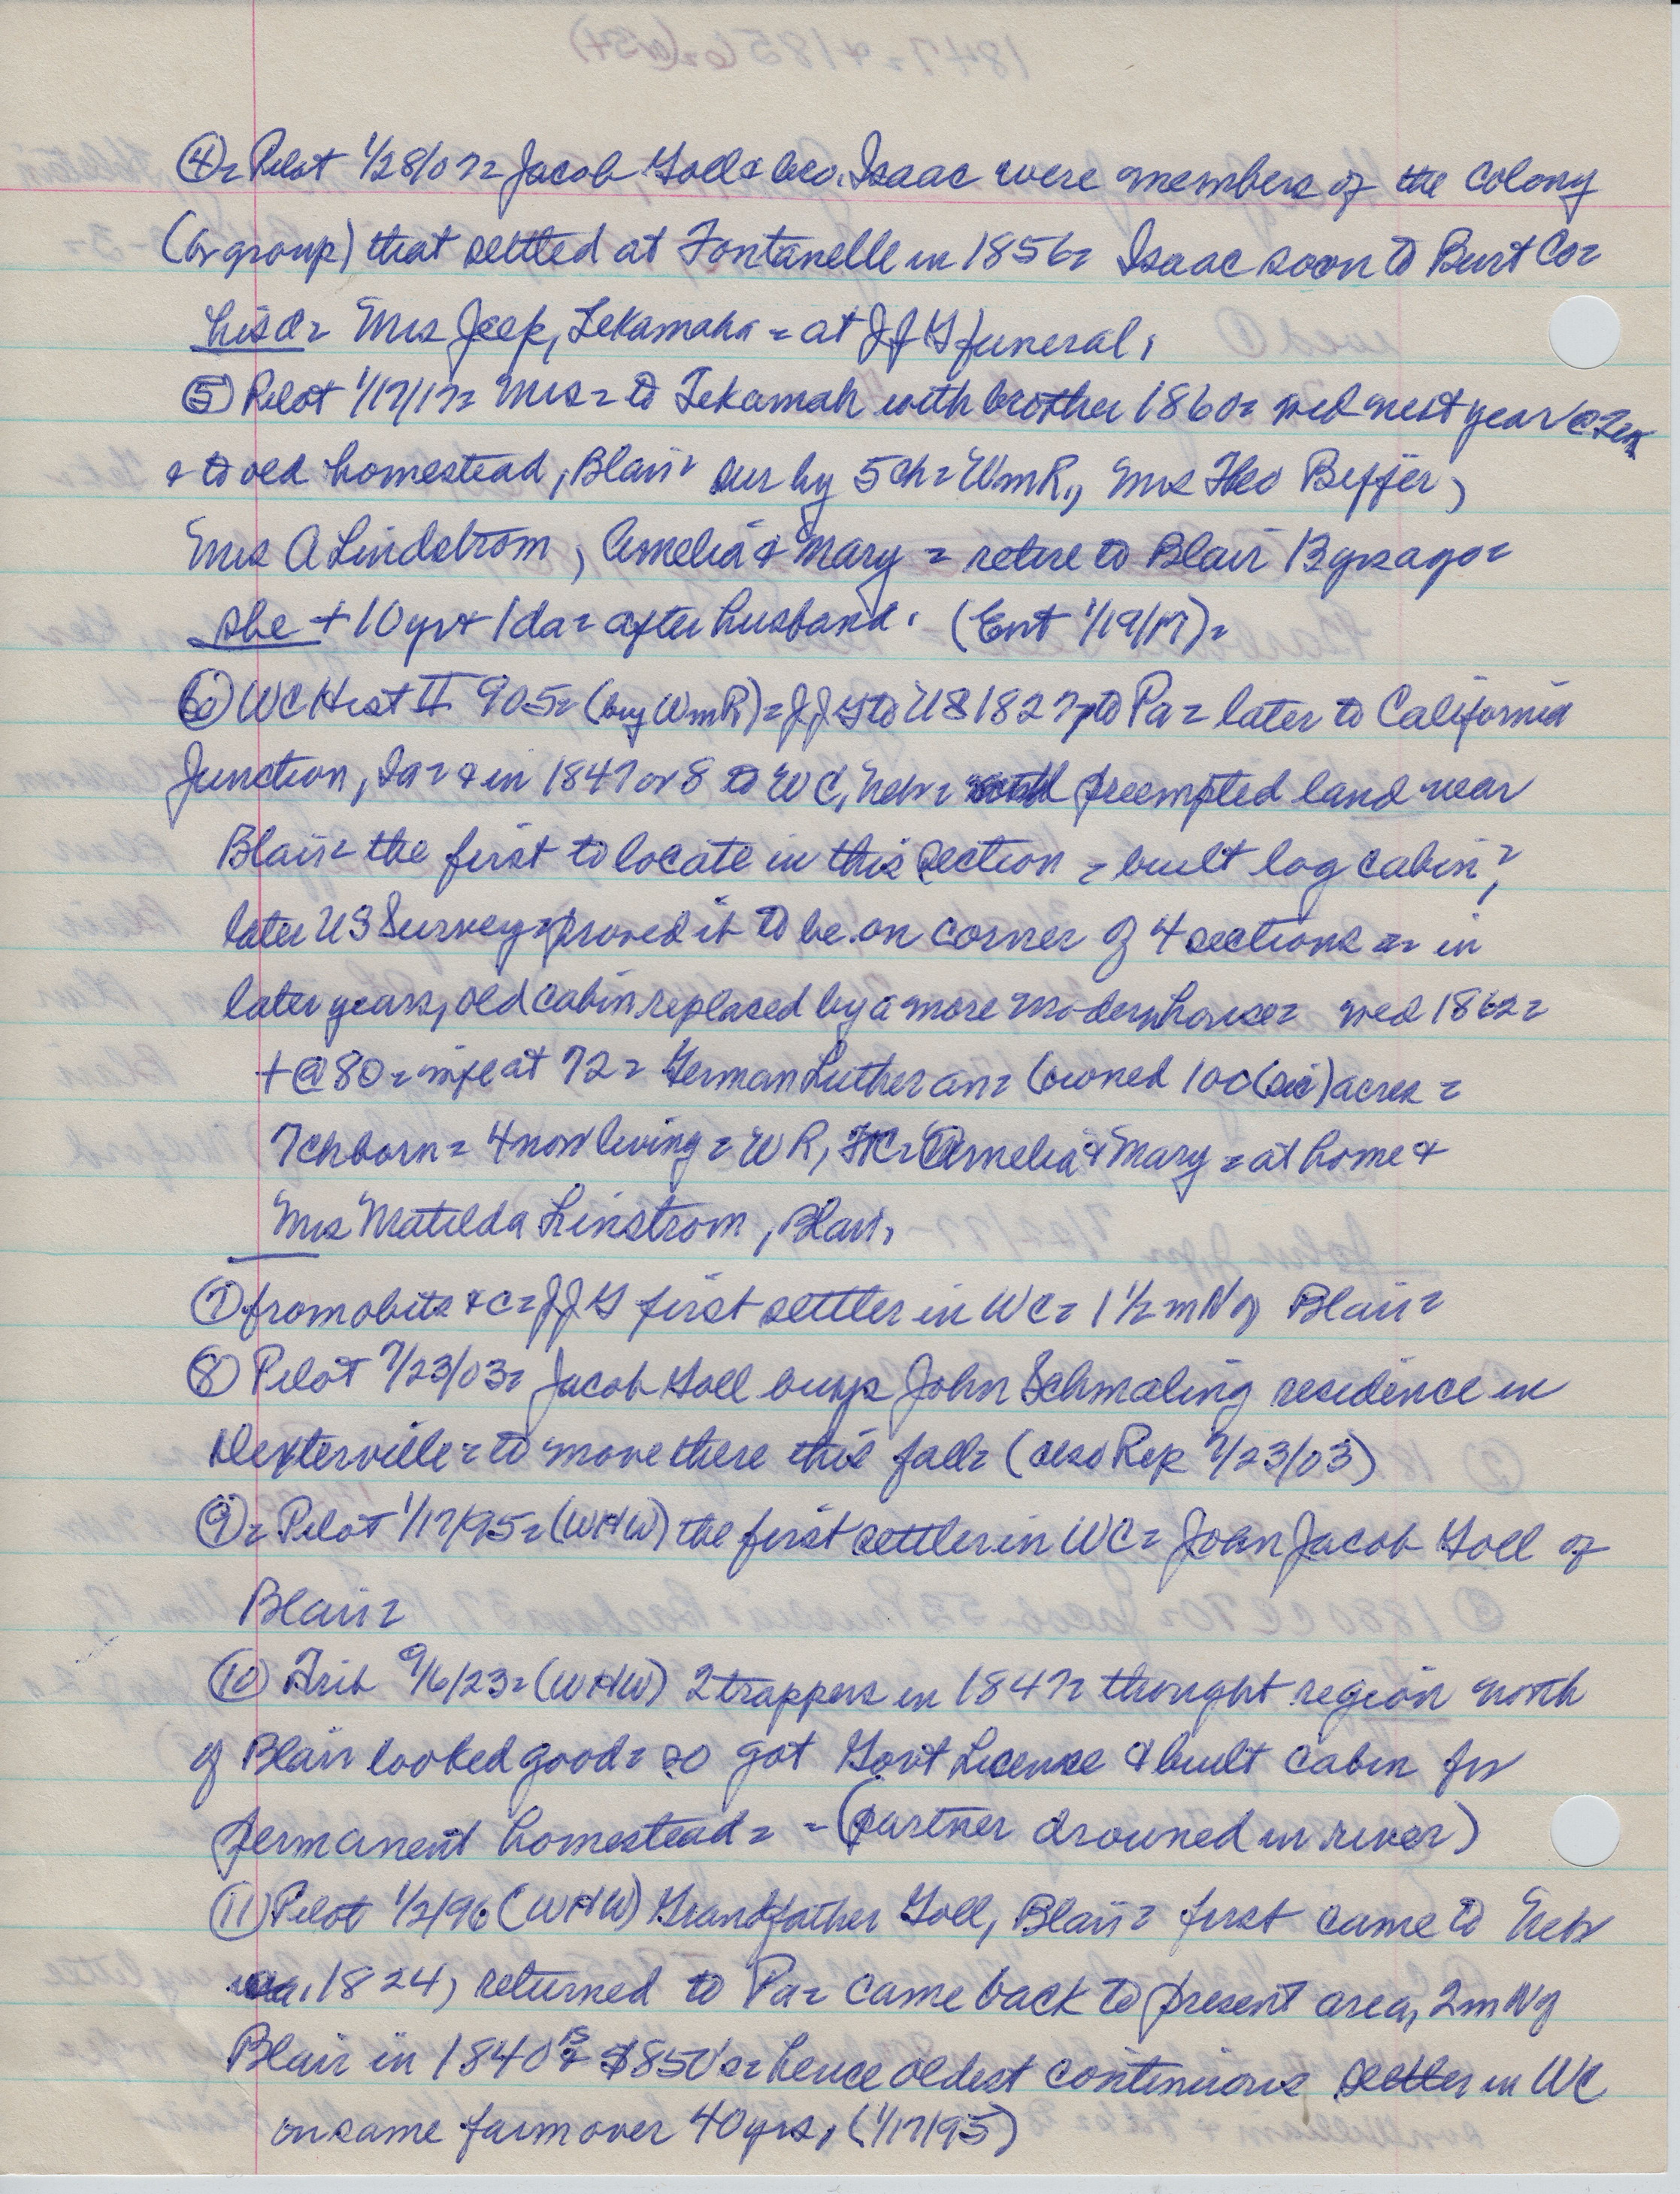 ④= Pilot 1/28/07= Jacob Goll & bro. Isaac were members of the Colony
(or group) that settled at Fontanelle in 1856= Isaac soon to Burt Co=
his d= Mrs Jeep, Tekamah = at JJG funeral.
⑤ Pilot 1/17/17= Mrs = to Tekamah with brother 1860= wed next year @ Tek
& to old homestead, Blair= sur by 5 ch= Wm R., Mrs Theo Beffer,
Mrs A Lindstrom, Amelia & Mary = retire to Blair 13 yrs ago=
she + 10 yr & 1 da= after husband. (Ent 1/19/17)=
⑥ WC Hist II 905= (bug Wm R)= JJG to US 1827, to Pa = later to California
Junction, Ia= & in 1847 or 8 to WC, Nebr= preempted land near
Blair= the first to locate in this section = built log cabin=,
later US Survey= proved it to be on corner of 4 sections = in
later years, old cabin replaced by a more modern house= wed 1862=
+ @ 80 = wife at 72 = German Lutheran= (owned 100 (sic) acres =
7 ch born = 4 now living = WR, Amelia & Mary = at home &
Mrs Matilda Linstrom, Blair.
⑦ from obits & c= JJG first settler in WC= 1 1/2 m N of Blair=
⑧ Pilot 7/23/03= Jacob Goll buys John Schmaling residence in
Dexterville = to move there this fall= (also Rep 7/23/03)
⑨= Pilot 1/17/95= (WHW) the first settler in WC= John Jacob Goll of
Blair=
⑩ Trib 9/6/23= (WHW) 2 trappers in 1847= thought region north
of Blair looked good= so got Govt License & built cabin for
permanent homestead = - (partner drowned in river)
⑪ Pilot 1/2/96 (WHW) Grandfather Goll, Blair= first came to Nebr
1824, returned to Pa= came back to present area, 2 m N of
Blair in 1840's & $850's= hence oldest continuous settler in WC
on same farm over 40 yrs, (1/17/95)